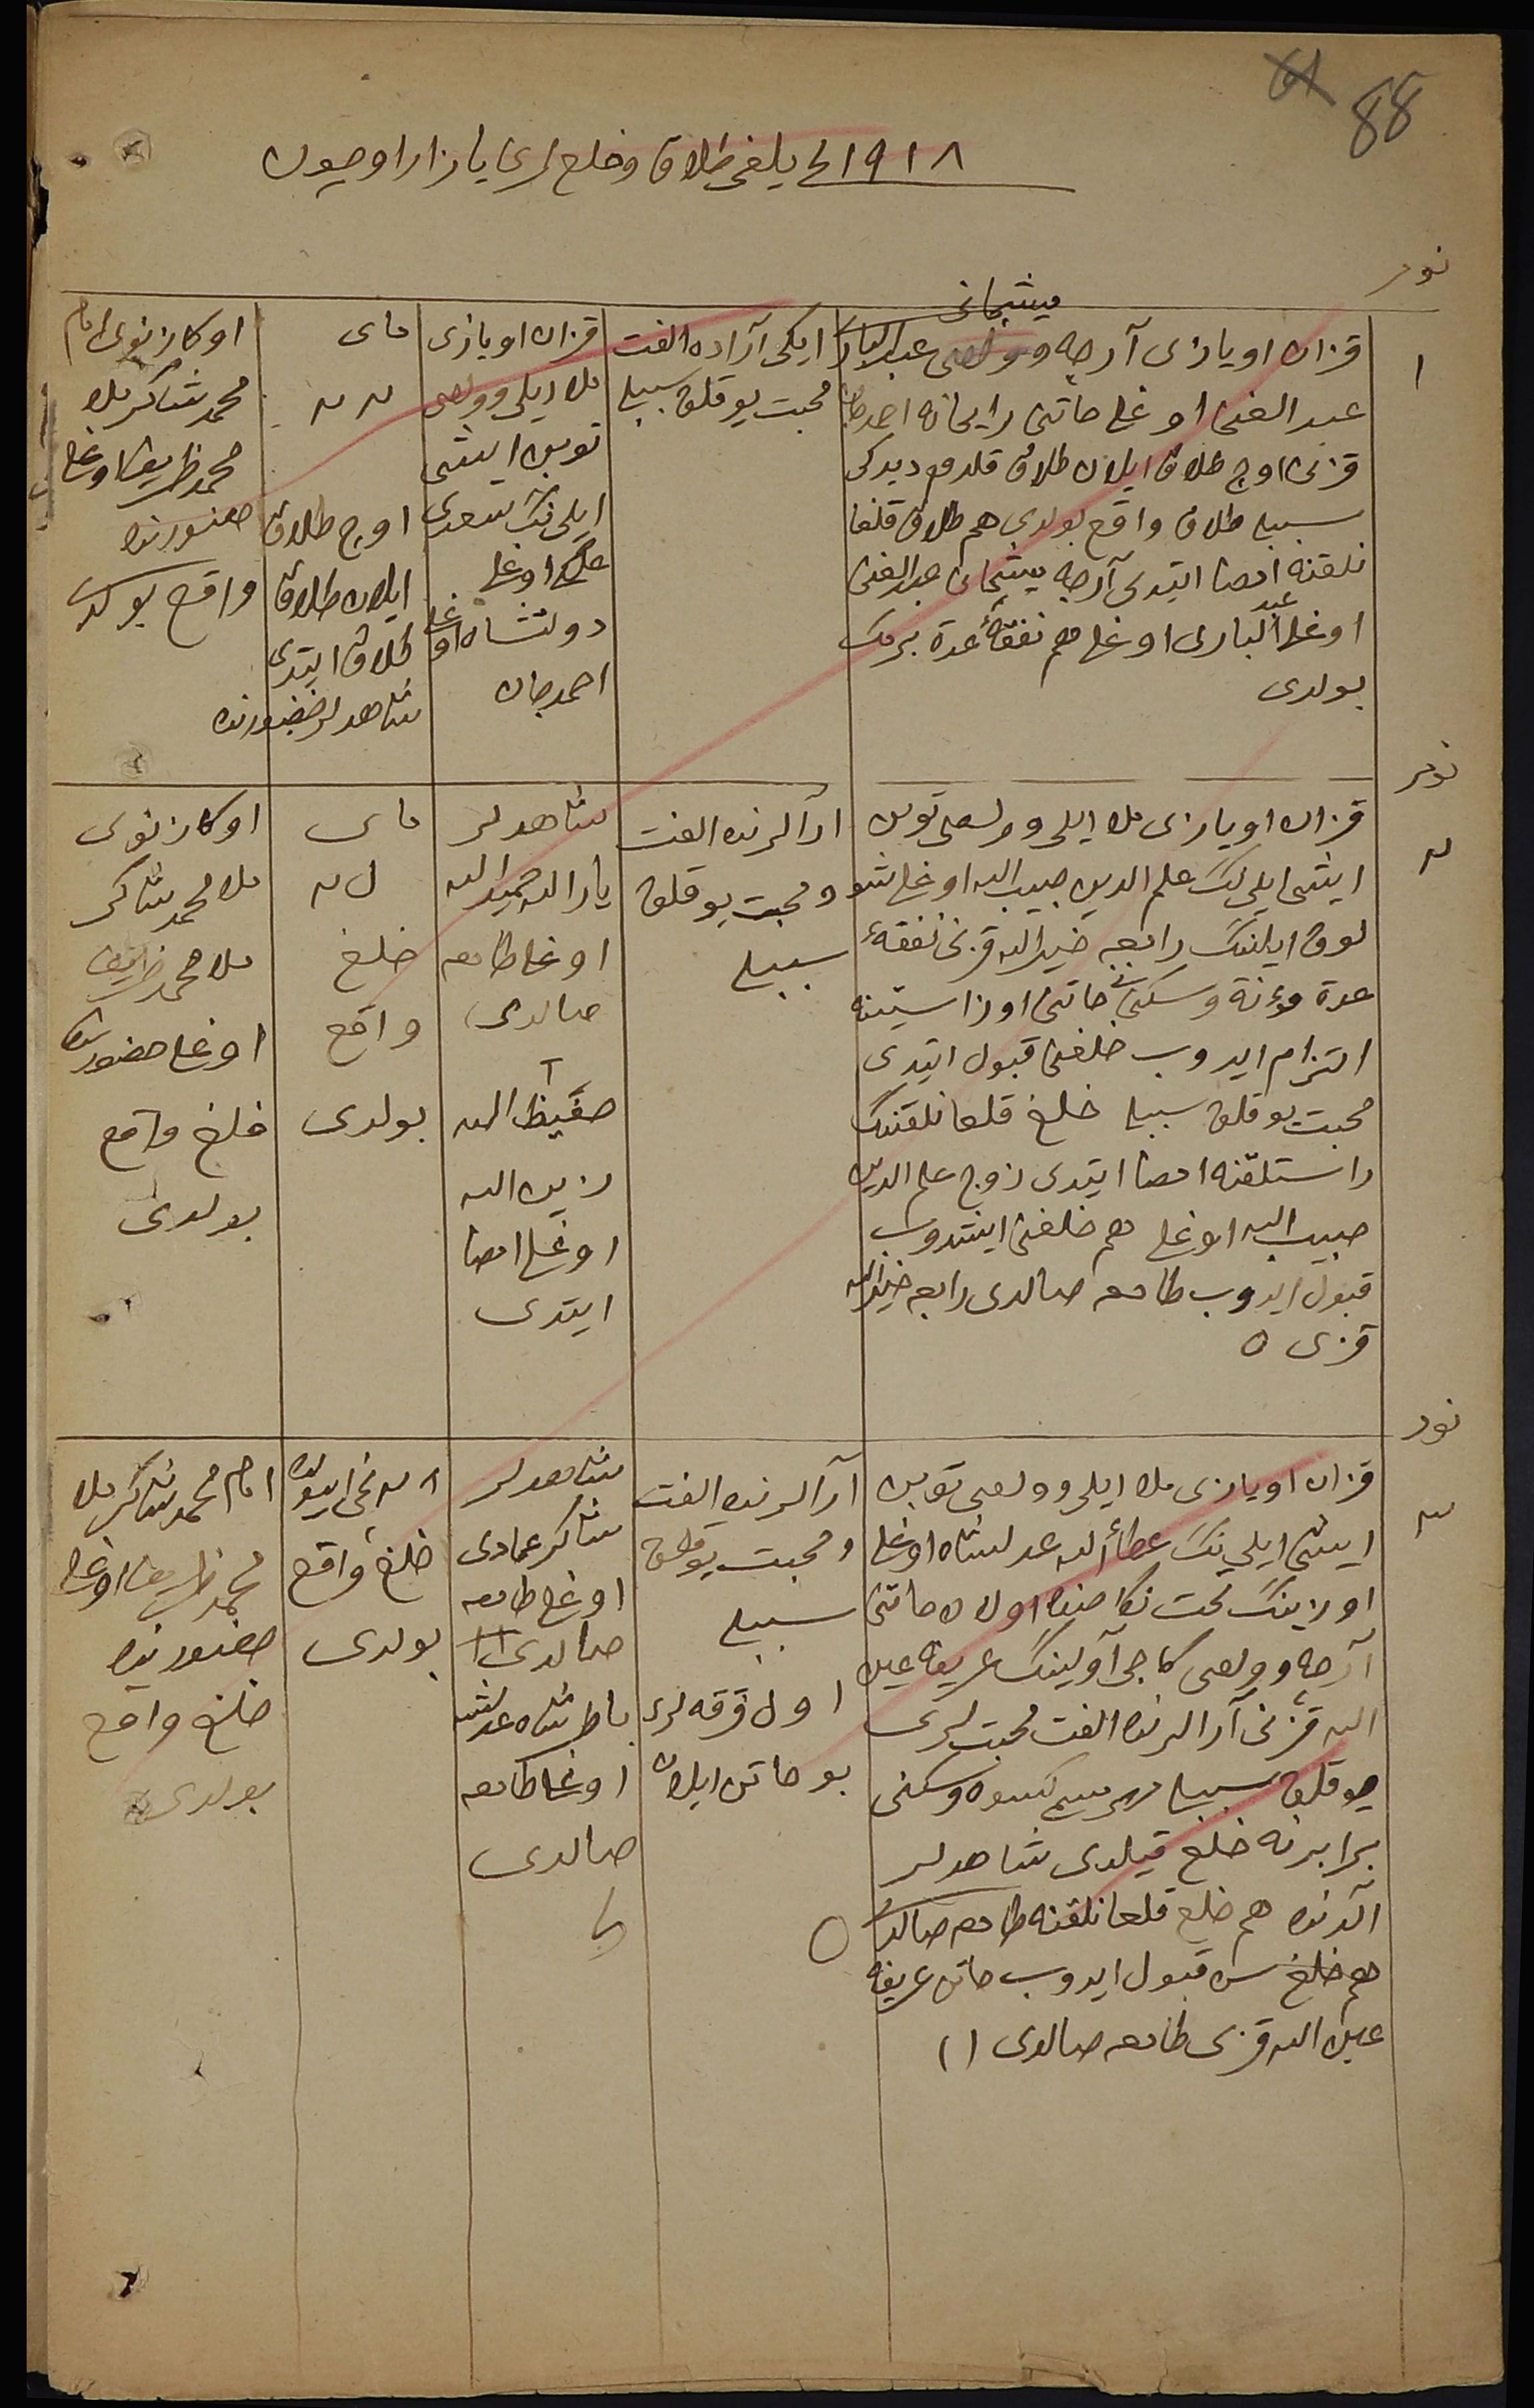 88
١٩١٨ نچی یلغی طلاق و خلع لری یازار اوچون
نومر
١
میشچانی
قزان اویازی آرچه عبدالباری
عبدالغنی اوغلی خاتنی رایحانه احمدجان
قزنی اوچ طلاق ایلان طلاق قلدم دیدکی
سببلی طلاق واقع بولدی هم طلاق قلغا
نلقنه امضا ایتدی آرچه میشچانی عبدالغنی
اوغلی عبد الباری اوغلی هم نفقهٔ عدة بیرمک
بولدی
ایکی آراده الفت
محبت یوقلق سببلی
قزان اویازی
ملا ایلی وولصی
توبن ایشی
ایلی ننک سعدی
اوغلی
دولتشاه اوغلی
احمدجان
مای
٢٢
اوچ طلاق
ایلان طلاق
طلاق ایتدی
شاهدلر حضورنده
اوکازنوی امام
محمد شاکر ملا
محمد ظریف اوغلی
حضورنده
واقع بولدی
نومر
٢
قزان اویازی ملا ایلی وولصی توبن
ایشی ایلی ننک علم الدین حبیب الله اوغلی شو
لوق ایلننک رابعه خیرالله قزنی نفقهٔ
عدة مؤنة و سکنی خاتنی اوز استینه
التزام ایدوب خلعنی قبول ایتدی
محبت یوقلق سببلی خلع قلغانلقننک
راستلقنه امضا ایتدی زوج علم الدین
حبیب الله اوغلی هم خلعنی ایشدوب
قبول ایدوب طامغه صالدی رابعه خیرالله
قزی ٥
آرالرنده الفت
و محبت یوقلق
سببلی
شاهدلر
یارالله حمیدالله
اوغلی طامغه
صالدی
حفیظ الله
زین الله
اوغلی امضا
ایتدی
مای
خلع
واقع
بولدی
اوکازنوی
ملا محمد شاکر
ملا محمد ظریف
اوغلی حضورنده
خلع واقع
بولدی
نومر
٣
قزان اویازی ملا ایلی وولصی توبن
ایشی ایلی ننک عطأالله عدلشاه اوغلی
اوزینک تحت نکاحنده اولان خاتنی
آرچه وولصی کاچی آولیننک عریفه عین
الله قزنی آرالرنده الفت محبت لری
یوقلق سببلی کسوه و سکنی
برابرنه خلع قیلدی شاهدلر
آلدنده هم خلع قلغانلقنه طامغه صالدی
هم خلع سن قبول ایدوب خاتن عریفه
عین الله قزی طامغه صالدی
آرالرنده الفت
و محبت یوقلق
سببلی
اول فرقه لری
بو خاتن ایلان
شاهدلر
شاکر عمادی
اوغلی طامغه
صالدی
باطرشاه عدلشاه
اوغلی طامغه
صالدی
خلع واقع
بولدی
امام محمد شاکر ملا
محمد ظریف اوغلی
حضورنده
خلع واقع
بولدی